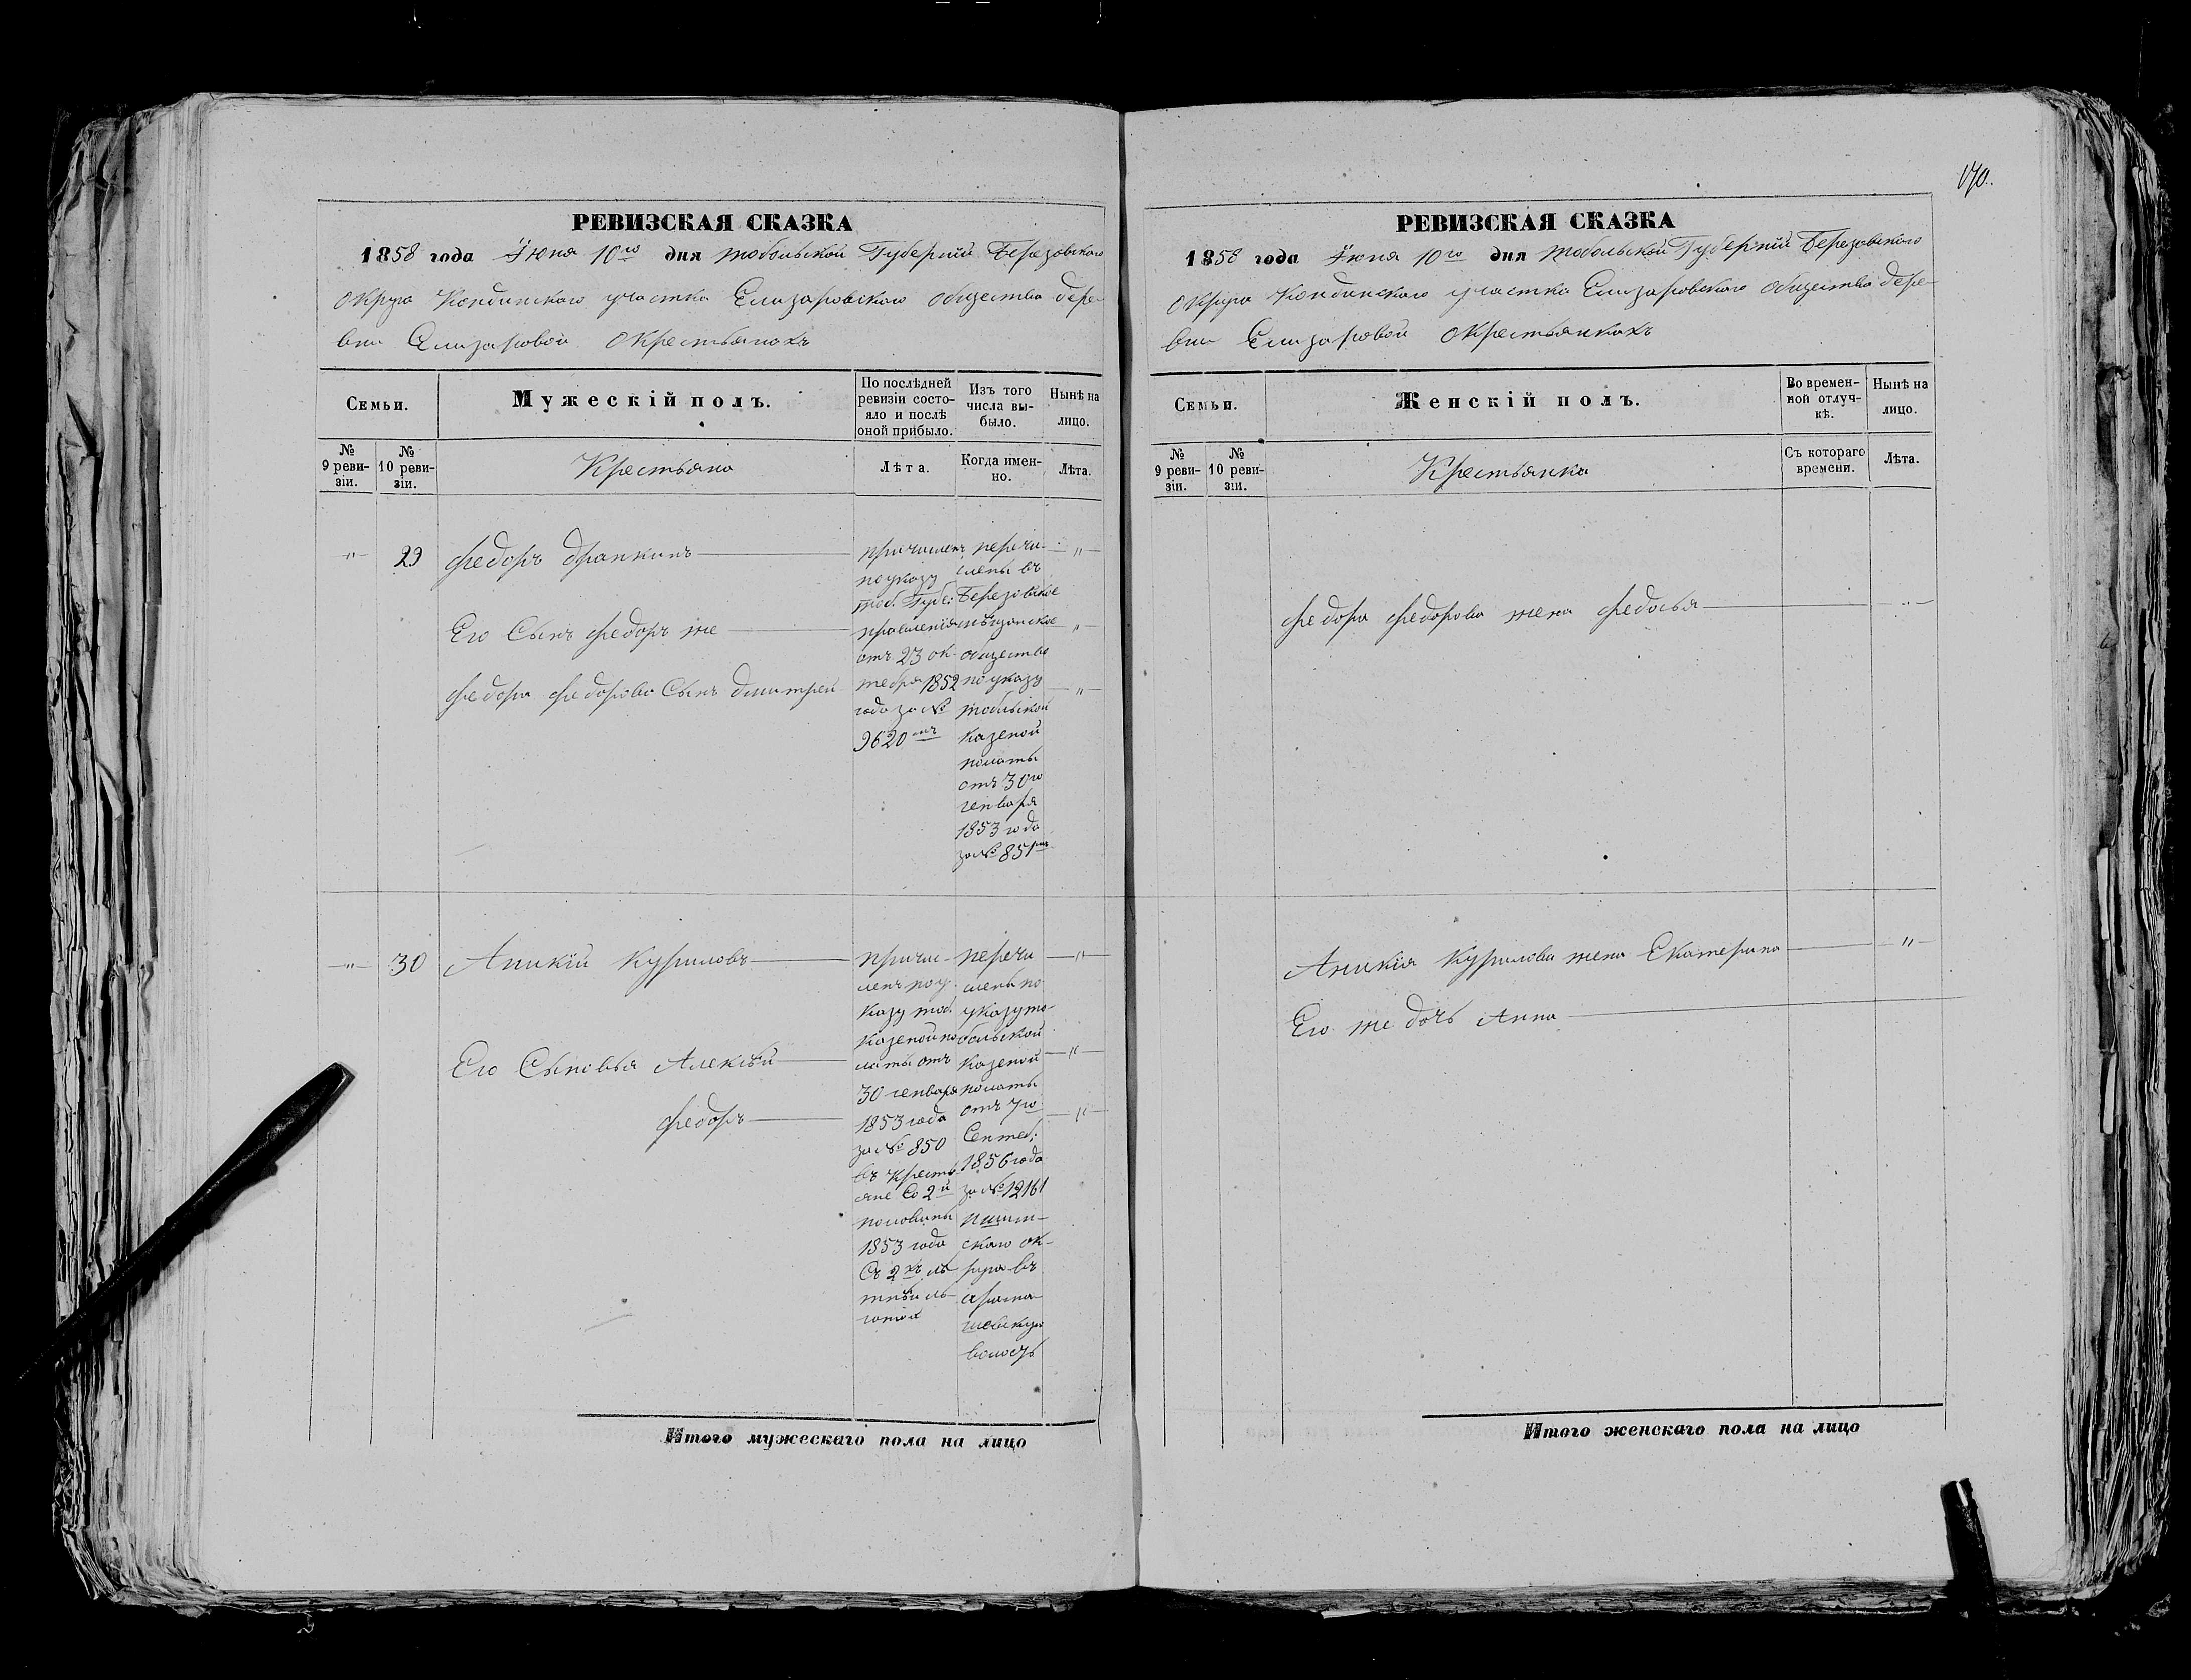 170.
РЕВИЗСКАЯ СКАЗКА
1858 года Іюня 10го дня тобольской Губерніи Березовскаго
округа Кондинскаго участка Елизаровскаго общества дере-
вни Елизаровой окрестьянахъ
Семьи.
Мужескій полъ.
По послѣдней ревизіи состояло и послѣ оной прибыло.
Изъ того числа выбыло.
Нынѣ на лицо.
№ 9 ревизіи.
№ 10 ревизіи.
Крестьяна
Лѣта.
Когда именно.
Лѣта.
-"- 29 федоръ
Его Сынъ федоръ же
федора федорова Сынъ дмитрей
причислен
по указу
тоб. Губе:
правленія
отъ 23 ок-
тебря 1852
года за №
9620мъ
перечи-
слены въ
Березовское
мѣщанское
общество
по указу
тобольской
казеной
полаты
отъ 30го
генваря
1853 года
за № 851мъ
-"- 30 Аникій Куриловъ
Его Сыновья Алексѣй
федоръ
причис-
ленъ по у-
казу тоб.
казеной по-
латы отъ
30 генваря
1853 года
за № 850
въ кресть-
яне Со 2й
половины
1853 года
Съ 2хъ лѣ-
тнѣй ль-
готой
перечи
слены по
указу то-
больской
казеной
полаты
отъ 7го
Сентеб:
1856 года
за № 12161
ишим-
скаго ок-
руга въ
арома-
шевскую
волость
Итого мужескаго пола на лицо
РЕВИЗСКАЯ СКАЗКА
1858 года Іюня 10го дня тобольской Губерніи Березовскаго
округа Кондинскаго участка Елизаровскаго общества дере-
вни Елизаровой окрестьянкахъ
Семьи.
Женскій полъ.
Во временной отлучкѣ.
Нынѣ на лицо.
№ 9 ревизіи.
№ 10 ревизіи.
Крестьянка
Съ котораго времени.
Лѣта.
федора федорова жена федосья
Аникія Курилова жена Екатерина -"-
Его же дочь Анна
Итого женскаго пола на лицо